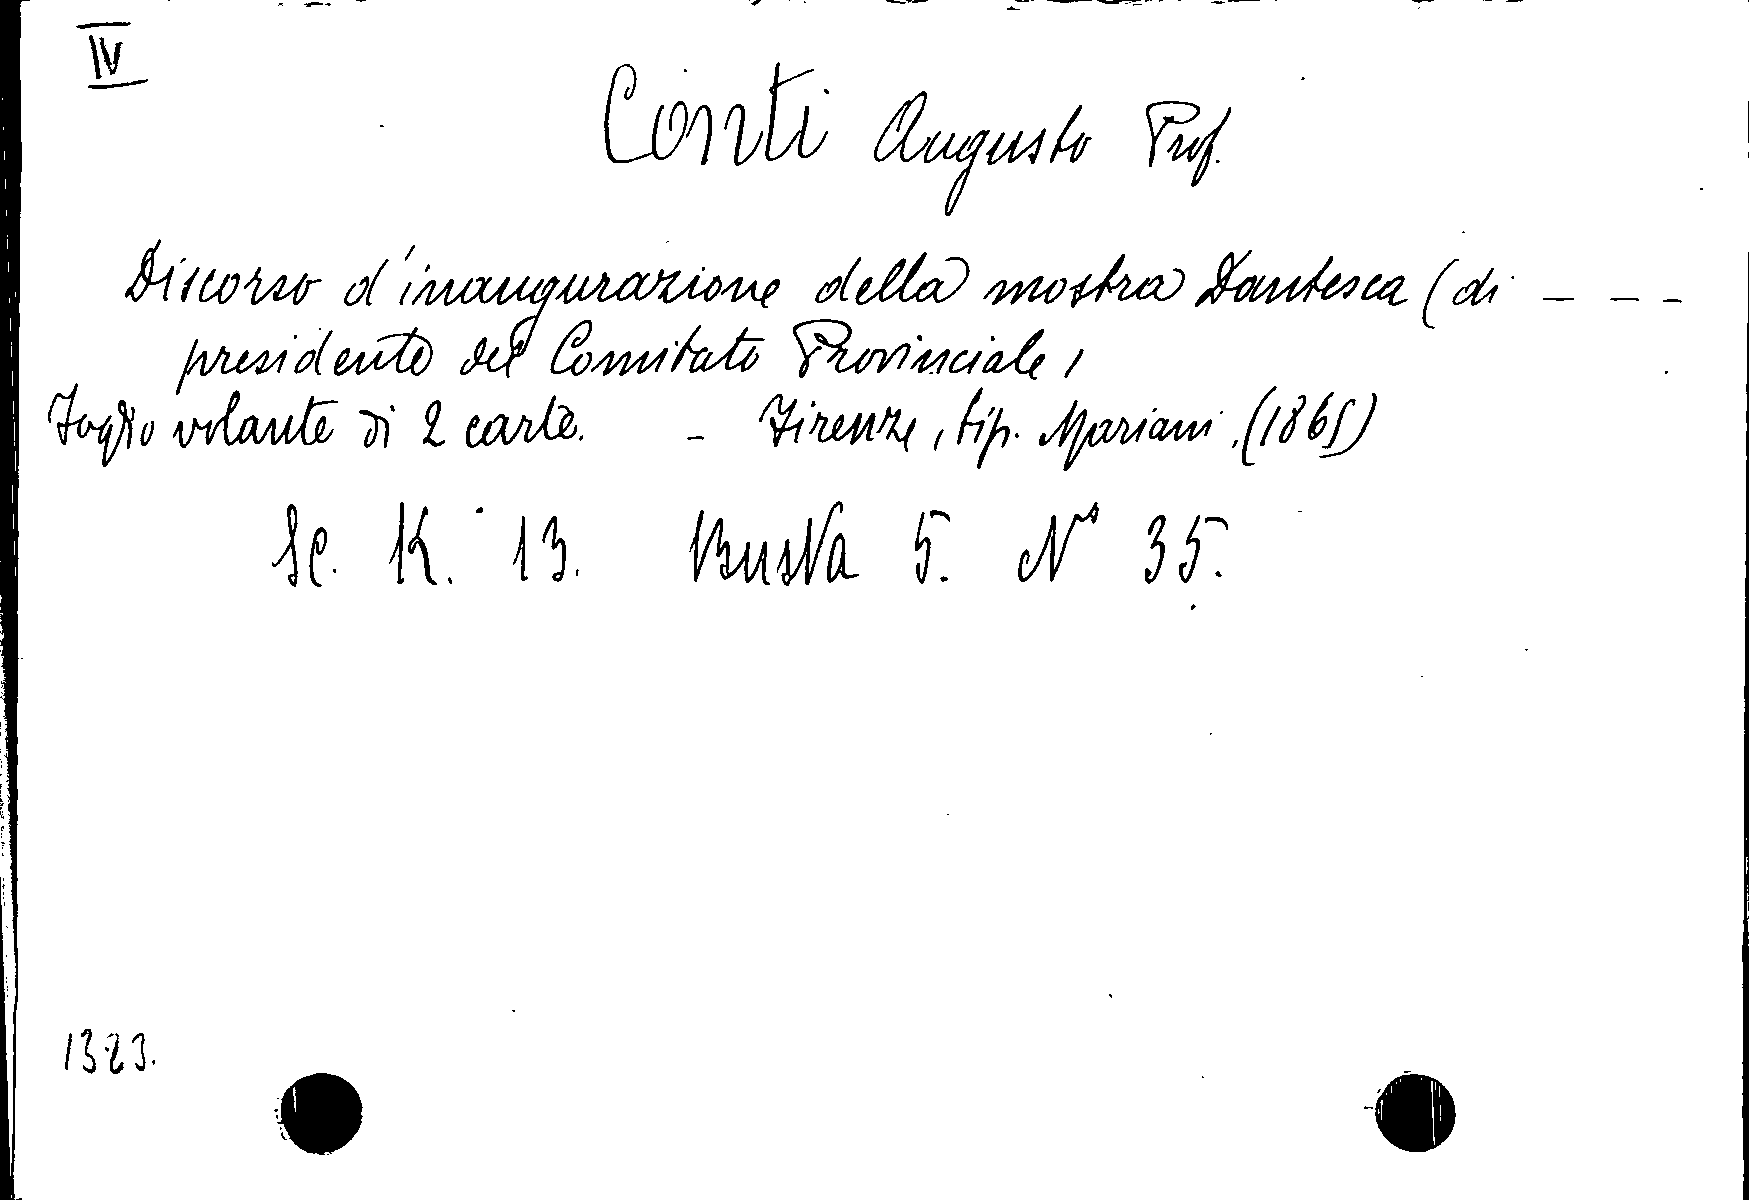 IV
Conti Augusto Prof.
Discorso d'inaugurazione della mostra Dantesca (di - - -
presidente del Comitato Provinciale,
Foglio volante di 2 carte. - Firenze, tip. Mariani, (1865)
Sc. K. 13. Busta 5. N° 35.
1323.